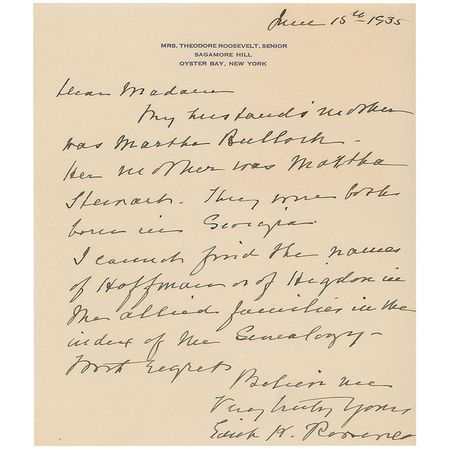 June 15th 1935
MRS. THEODORE ROOSEVELT, SENIOR
SAGAMORE HILL
OYSTER BAY, NEW YORK
Dear Madam
My husband's mother
was Martha Bulloch.
Her mother was Martha
Stewart. They were both
born in Georgia
I cannot find the names
of Hoffman or of Higdon in
the allied families in the
index of the Genealogy—
With regrets
Believe me
Very truly yours
Edith K. Roosevelt